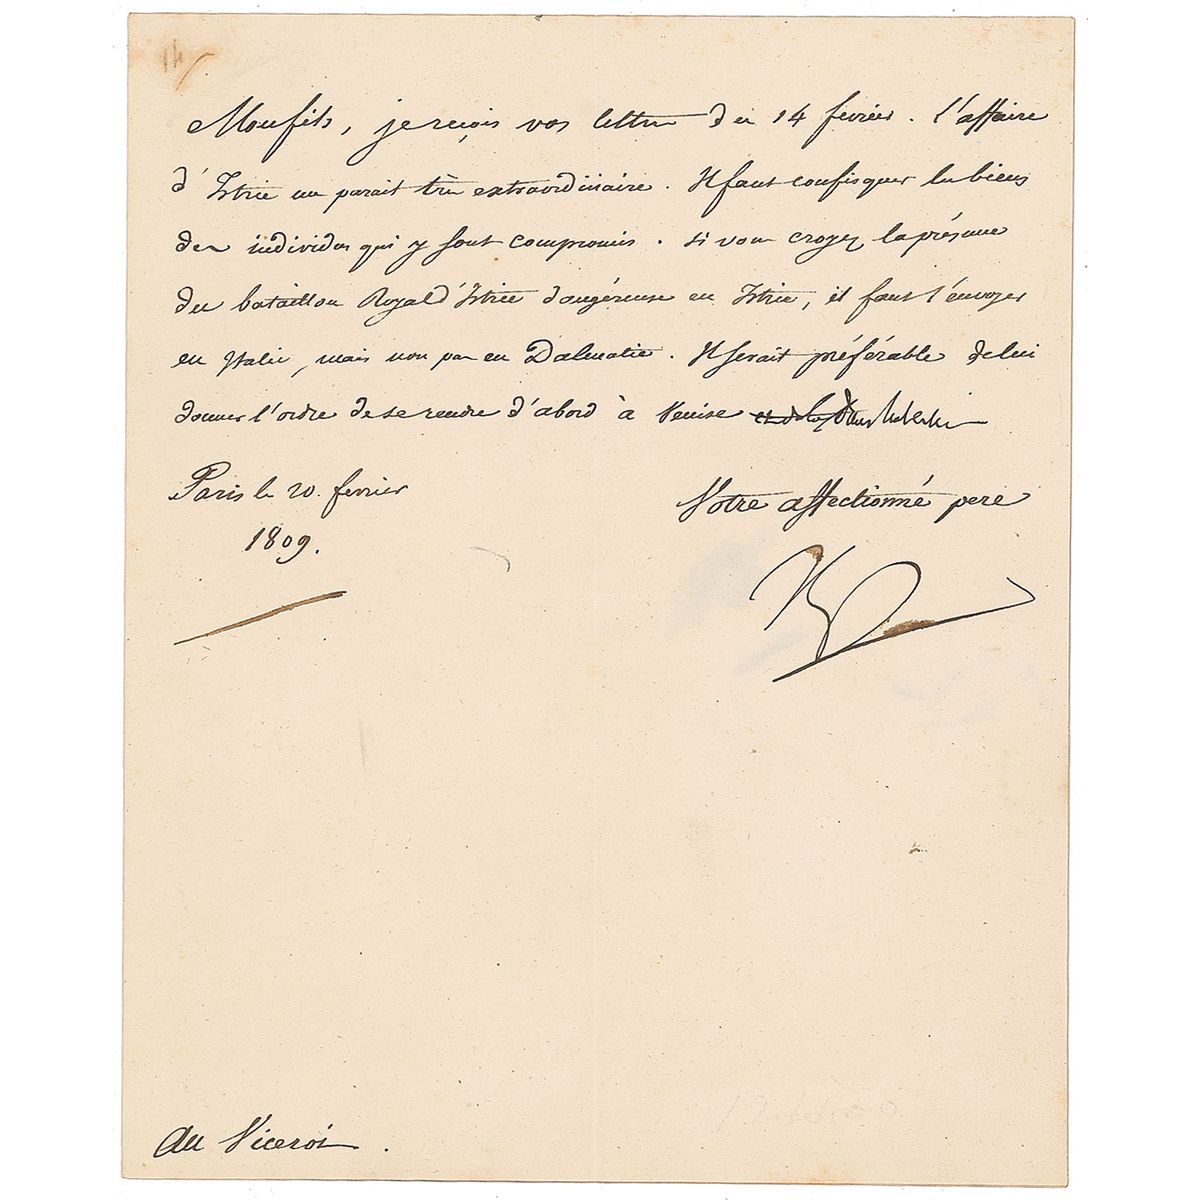 14
Mon fils, je reçois vos lettres du 14 février. l'affaire
d'Istrie me parait très extraordinaire. Il faut confisquer les biens
des individus qui y sont compromis. si vous croyez la présence
du bataillon Royal d'Istrie dangéreuse en Istrie, il faut l'envoyer
en Italie, mais non pas en Dalmatie. Il serait préférable de lui
donner l'ordre de se rendre d'abord à Venise
Paris le 20. fevrier
1809.
Votre affectionné pere
Au Viceroi.